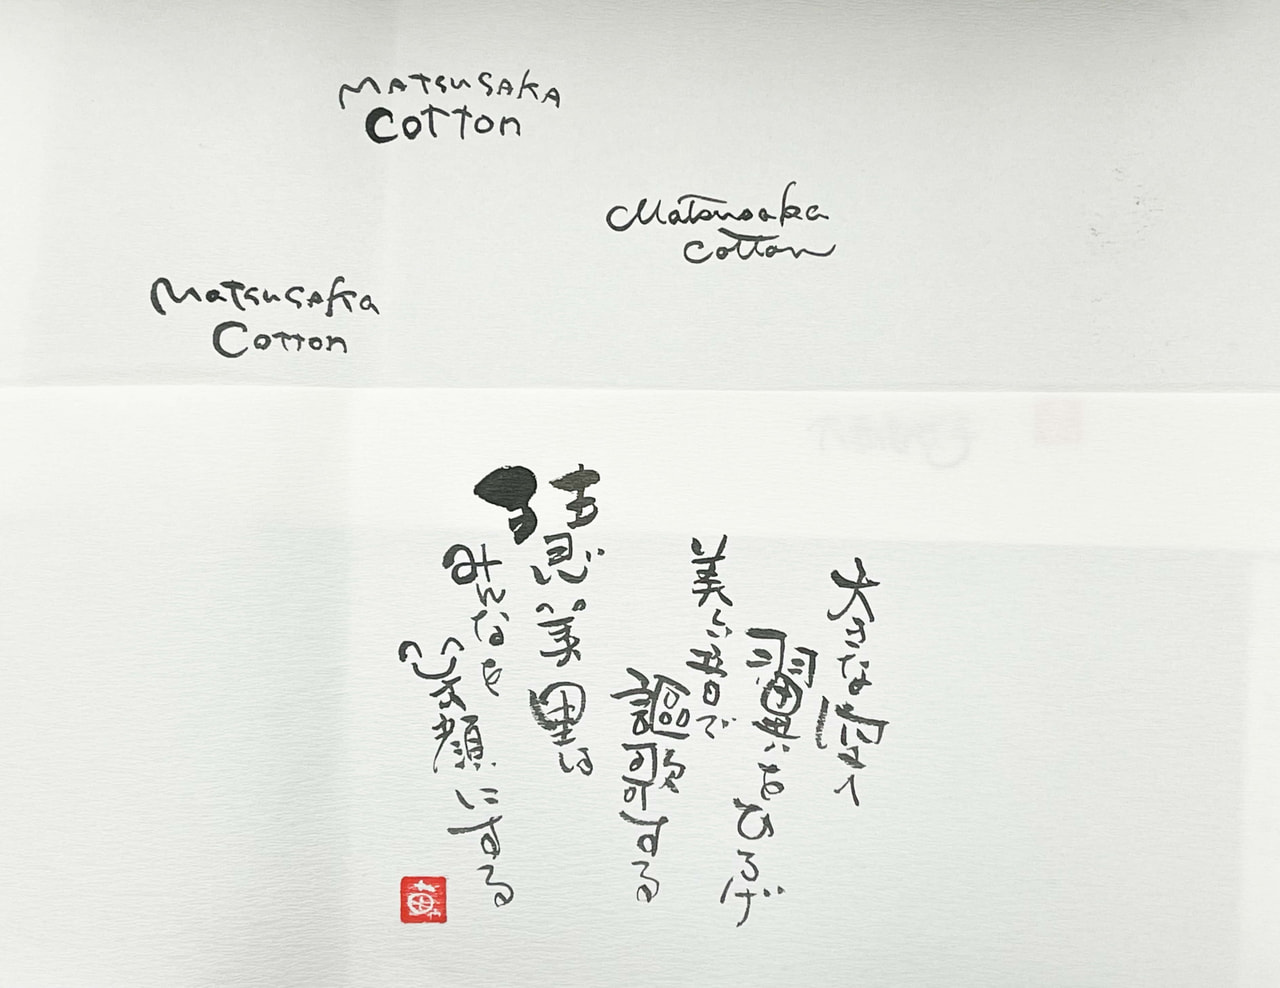 MATSUSAKA
Cotton
Matsusaka
cotton
MatsusaKa
Cotton
大きな空へ
翼をひろげ
美しい音で
謳歌する
恵美里は
みんなを
笑顔にする